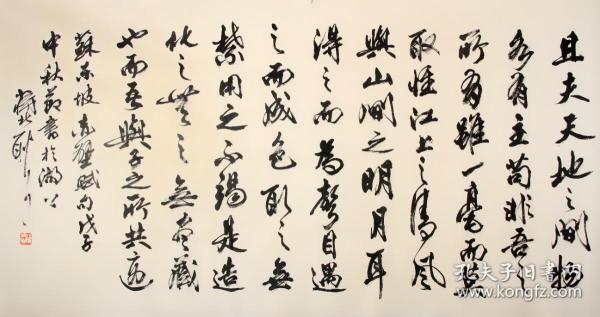 且夫天地之間物
各有主苟非吾之
所有雖一毫而莫
取惟江上之清風
與山間之明月耳
得之而為聲目遇
之而成色取之無
禁用之不竭是造
之無盡藏
也而吾與子之所共適
蘇東坡赤壁賦句戊子
中秋節書於湖上
孔夫子旧书网
www.kongfz.com